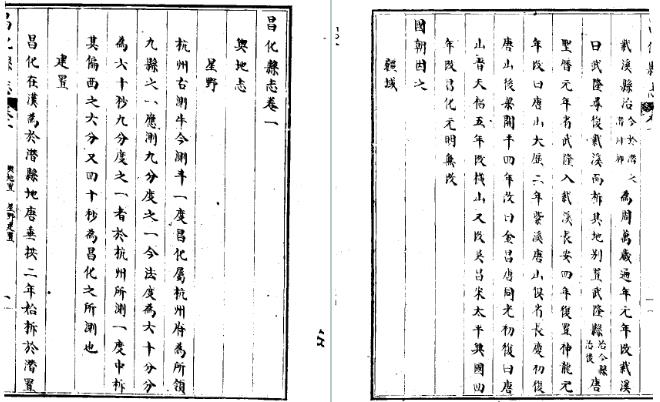 昌化縣志卷一
輿地志
星野
杭州古測牛今測斗一度昌化屬杭州府為所領
九縣之一應測九分度之一今法度為六十分分
為六十秒九分度之一者於杭州所測一度中析
其偏西之六分又四十秒為昌化之所測也
建置
昌化在漢為於潛縣地唐垂拱二年始析於潛置
輿地志 星野建置
紫溪縣治今於潛之
為周萬歲通年元年改紫溪
曰武隆尋復紫溪而析其地別置武隆縣
治今縣
治後
唐
聖曆元年省武隆入紫溪長安四年復置神龍元
年改曰唐山大歷二年紫溪唐山俱省長慶初復
唐山後梁開平四年改曰金昌唐同光初復曰唐
山晉天福五年改橫山又改吳昌宋太平興國四
年改昌化元明無改
國朝因之
疆域